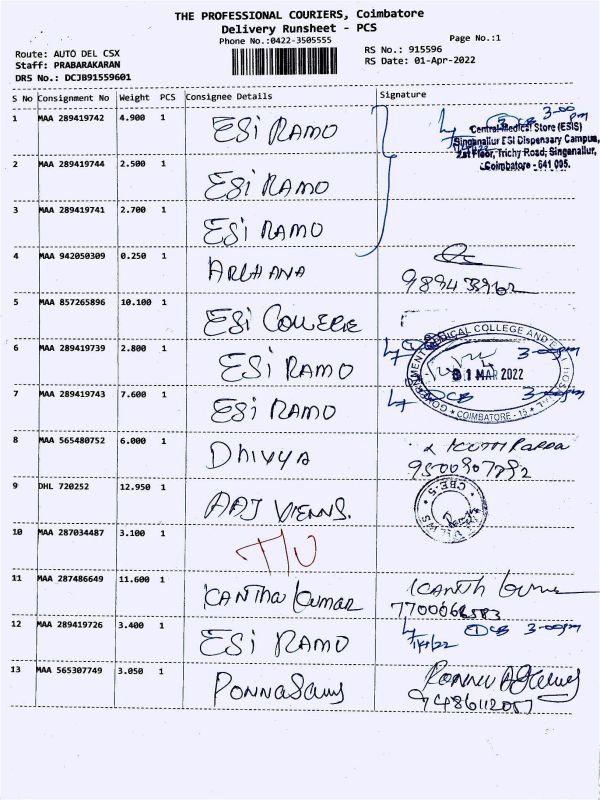 THE PROFESSIONAL COURIERS, Coimbatore
Delivery Runsheet - PCS
Phone No.:0422-3505555
Page No.:1
Route: AUTO DEL CSX
Staff: PRABARAKARAN
DRS No.: DCJB91559601
RS No.: 915596
RS Date: 01-Apr-2022
S No Consignment No Weight PCS Consignee Details Signature
1 MAA 289419742 4.900 1 ESi RAMO 3-00 pm
Central Medical Store (ESIS)
Singanallur ESI Dispensary Campus,
1st Floor, Trichy Road, Singanallur,
Coimbatore - 641 005.
2 MAA 289419744 2.500 1 ESi RAMO
3 MAA 289419741 2.700 1 ESi RAMO
4 MAA 942050309 0.250 1 ARCHANA
5 MAA 857265896 10.100 1 ESi COLLEGE
6 MAA 289419739 2.800 1 ESi RAMO 3-00pm
GOVERNMENT MEDICAL COLLEGE AND ESI HOSPITAL
31 MAR 2022
COIMBATORE - 15
7 MAA 289419743 7.600 1 ESi RAMO CB 3-00pm
8 MAA 565480752 6.000 1 Dhivya
9500907892
9 DHL 720252 12.950 1
CBE-5
10 MAA 287034487 3.100 1
11 MAA 287486649 11.600 1 KANTHA Kumar
7700066583
12 MAA 289419726 3.400 1 ESi RAMO CB 3-00pm
1/4/22
13 MAA 565307749 3.050 1 PONNASamy
9486112057